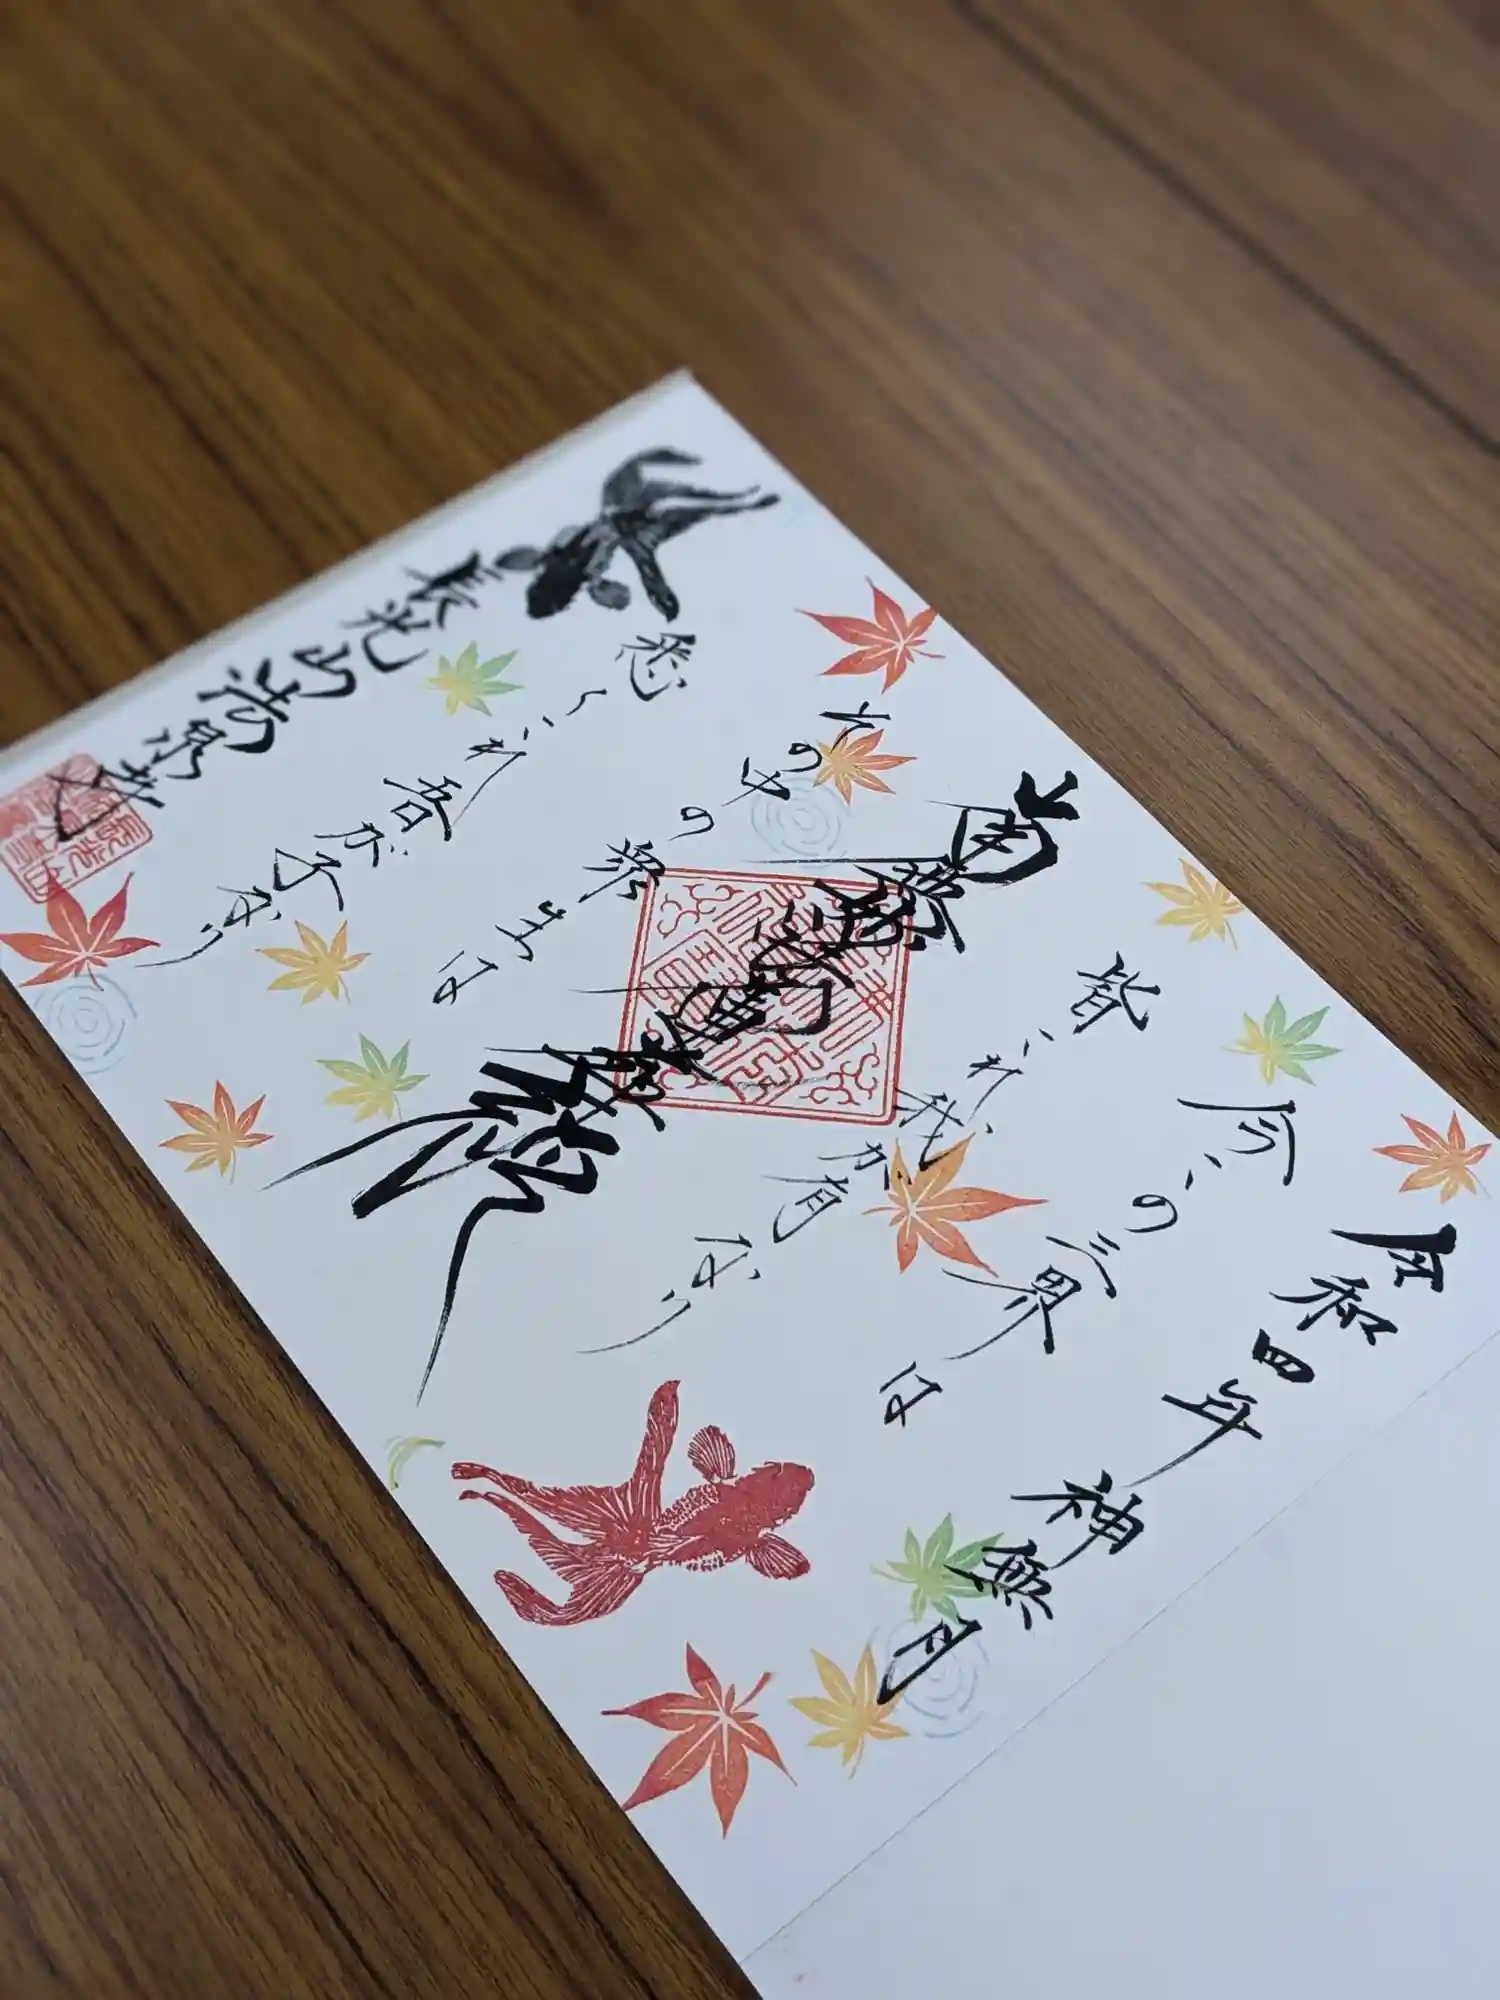 令和四年 神無月
今この三界は
皆これ我が有なり
南無妙法蓮華経
その中の衆生は
悉くこれ吾が子なり
長光山法泉寺